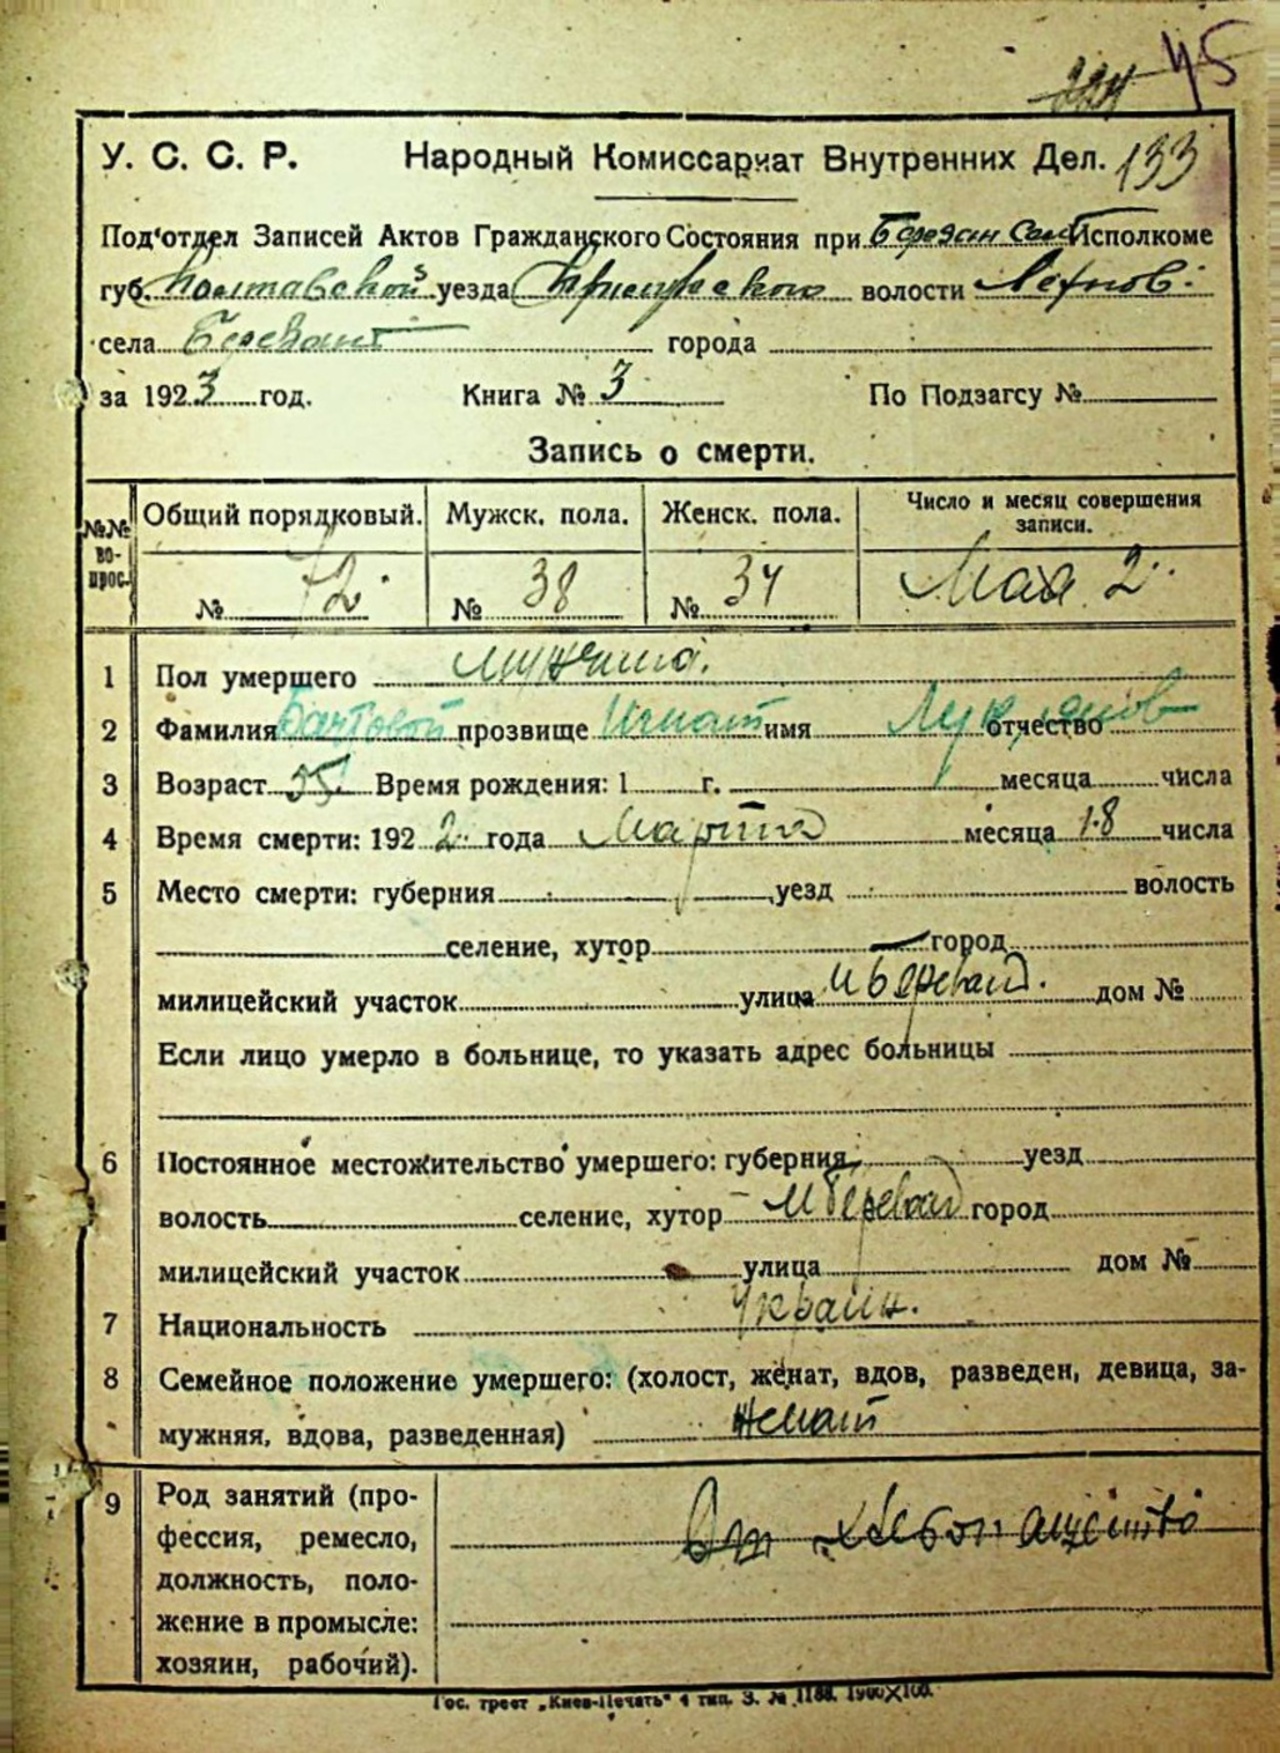 45
224
У. С. С. Р. Народный Комиссариат Внутренних Дел. 133
Под'отдел Записей Актов Гражданского Состояния при Исполкоме
губ. Полтавской уезда волости
села города
за 1923 год. Книга № 3 По Подзагсу №
Запись о смерти.
№№ вопрос. Общий порядковый. Мужск. пола. Женск. пола. Число и месяц совершения записи.
№ 72. № 38 № 34 Мая 2.
1 Пол умершего мужчина.
2 Фамилия прозвище Игнат имя Лукьянов отчество
3 Возраст 55. Время рождения: 1 г. месяца числа
4 Время смерти: 192 2 года Марта месяца 18 числа
5 Место смерти: губерния уезд волость
селение, хутор город
милицейский участок улица дом №
Если лицо умерло в больнице, то указать адрес больницы
6 Постоянное местожительство умершего: губерния уезд
волость селение, хутор город
милицейский участок улица дом №
7 Национальность Украин.
8 Семейное положение умершего: (холост, женат, вдов, разведен, девица, за-
мужняя, вдова, разведенная) женат
9 Род занятий (про-
фессия, ремесло,
должность, поло-
жение в промысле:
хозяин, рабочий).
Гос. трест „Киев-Печать" 4 тип. З. № 1188. 1900×100.